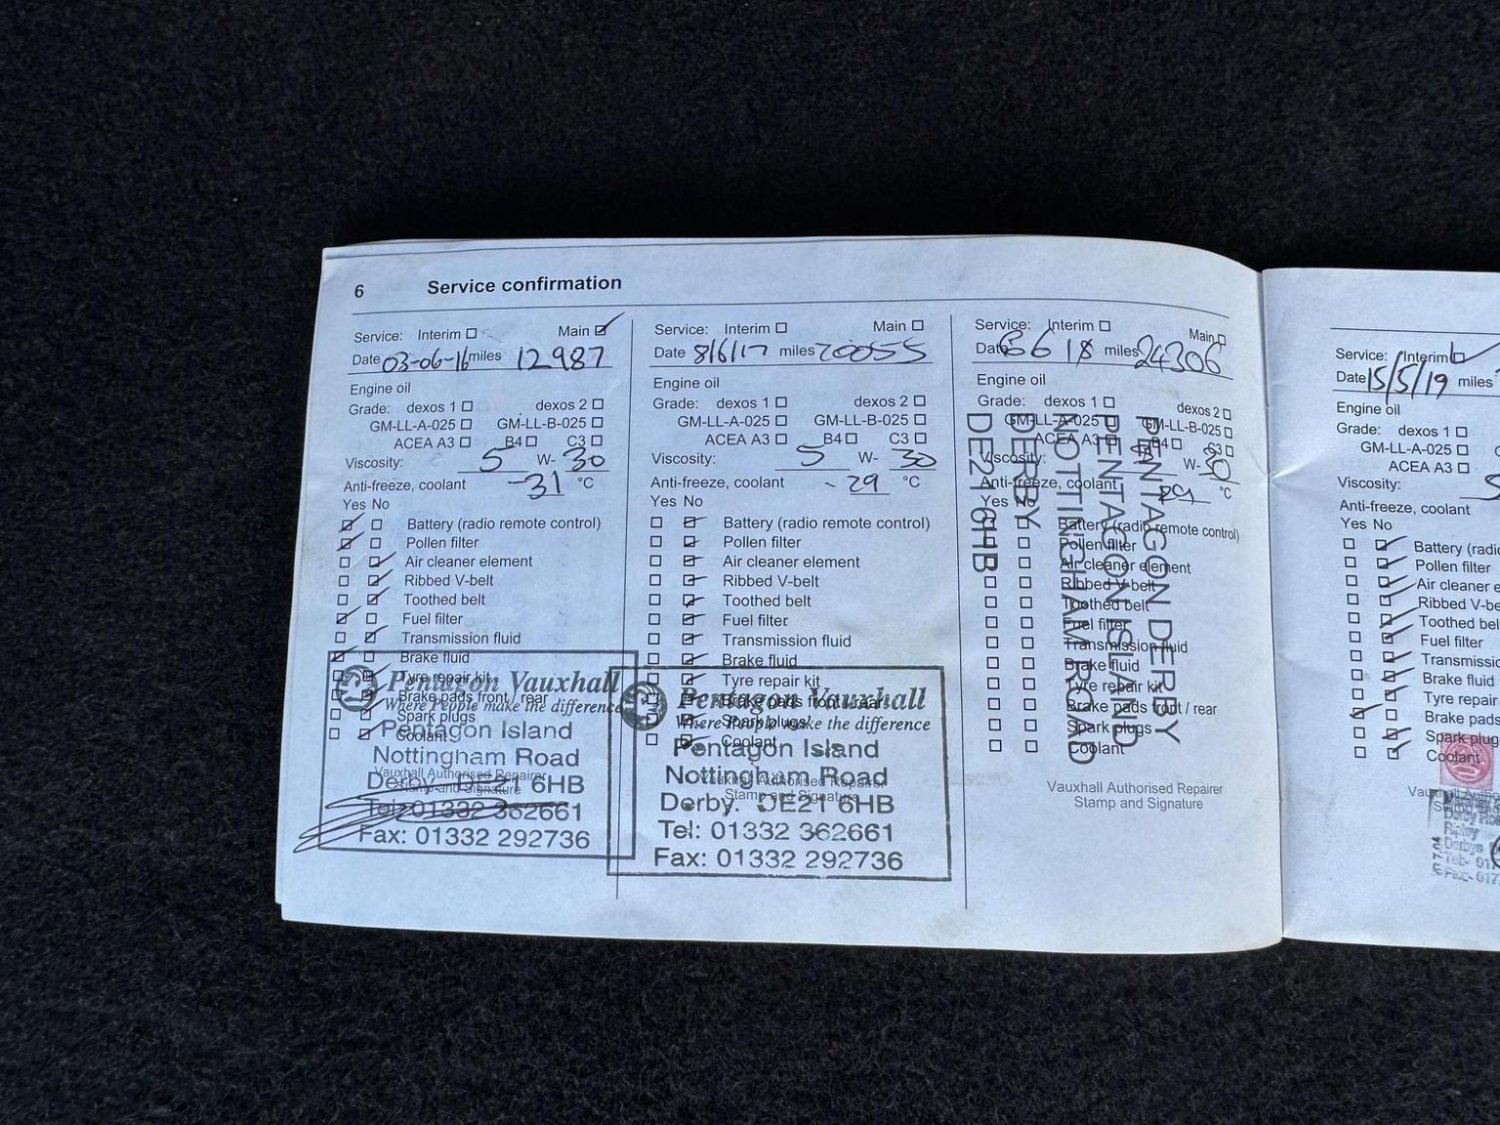 6 Service confirmation
Service: Interim Main
Date 03-06-16 miles 12987
Engine oil
Grade: dexos 1 dexos 2
GM-LL-A-025 GM-LL-B-025
ACEA A3 B4 C3
Viscosity: 5 W- 30
Anti-freeze, coolant -31 °C
Yes No
Battery (radio remote control)
Pollen filter
Air cleaner element
Ribbed V-belt
Toothed belt
Fuel filter
Transmission fluid
Brake fluid
Tyre repair kit
Brake pads front / rear
Spark plugs
Coolant
Vauxhall Authorised Repairer
Stamp and Signature
Pentagon Vauxhall
Where People make the difference
Pentagon Island
Nottingham Road
Derby. DE21 6HB
Tel: 01332 362661
Fax: 01332 292736
Service: Interim Main
Date 8/6/17 miles 20055
Engine oil
Grade: dexos 1 dexos 2
GM-LL-A-025 GM-LL-B-025
ACEA A3 B4 C3
Viscosity: 5 W- 30
Anti-freeze, coolant - 29 °C
Yes No
Battery (radio remote control)
Pollen filter
Air cleaner element
Ribbed V-belt
Toothed belt
Fuel filter
Transmission fluid
Brake fluid
Tyre repair kit
Brake pads front / rear
Spark plugs
Coolant
Vauxhall Authorised Repairer
Stamp and Signature
Pentagon Vauxhall
Where People make the difference
Pentagon Island
Nottingham Road
Derby. DE21 6HB
Tel: 01332 362661
Fax: 01332 292736
Service: Interim Main
Date 6 18 miles 24306
Engine oil
Grade: dexos 1 dexos 2
GM-LL-A-025 GM-LL-B-025
ACEA A3 B4 C3
Viscosity: W- 30
Anti-freeze, coolant °C
Yes No
Battery (radio remote control)
Pollen filter
Air cleaner element
Ribbed V-belt
Toothed belt
Fuel filter
Transmission fluid
Brake fluid
Tyre repair kit
Brake pads front / rear
Spark plugs
Coolant
Vauxhall Authorised Repairer
Stamp and Signature
PENTAGON DERBY
PENTAGON ISLAND
NOTTINGHAM ROAD
DERBY
DE21 6HB
Service: Interim
Date 15/5/19 miles
Engine oil
Grade: dexos 1
GM-LL-A-025
ACEA A3
Viscosity: 5
Anti-freeze, coolant
Yes No
Battery (radio
Pollen filter
Air cleaner e
Ribbed V-be
Toothed bel
Fuel filter
Transmissio
Brake fluid
Tyre repair
Brake pads
Spark plug
Coolant
Ripley
Derbys